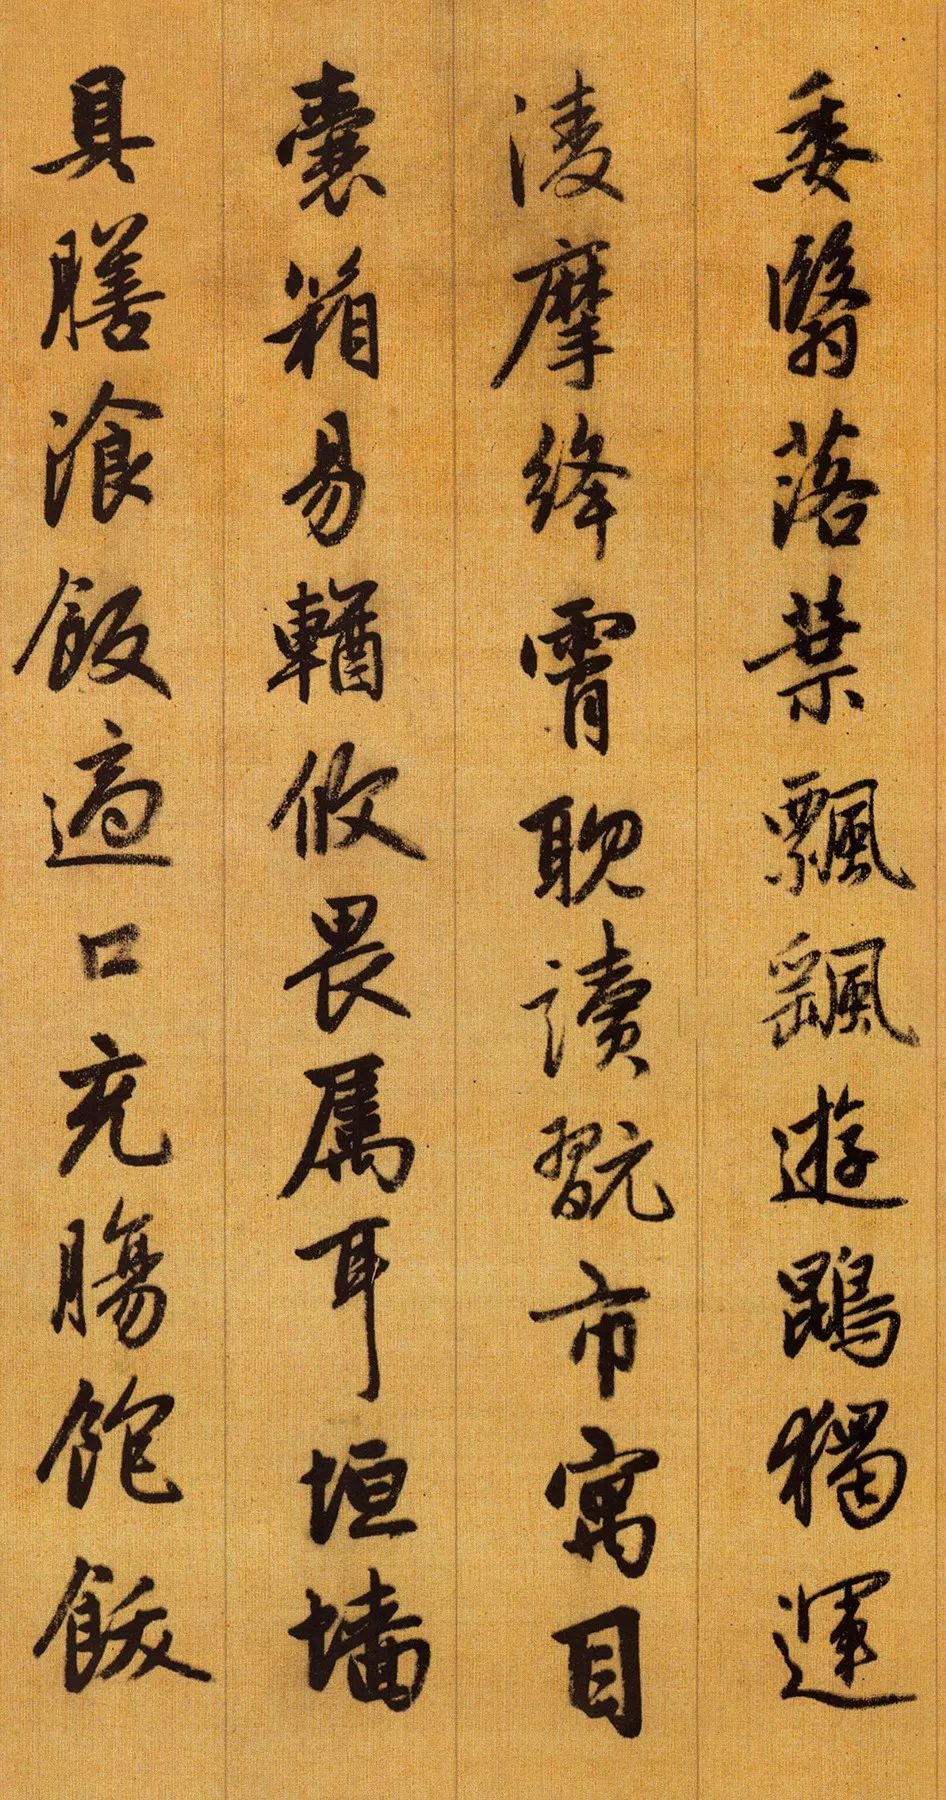 委翳落葉飄飖遊鵾獨運
淩摩絳霄耽讀翫市寓目
囊箱易輶攸畏属耳垣墻
具膳湌飯適口充腸飽飫